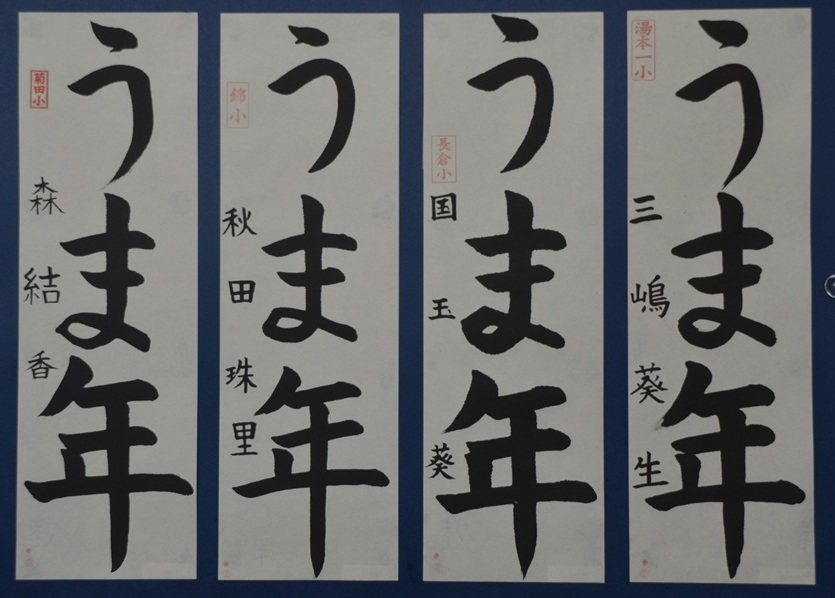 湯本一小
うま年
三嶋葵生
長倉小
うま年
国玉葵
錦小
うま年
秋田珠里
菊田小
うま年
森結香